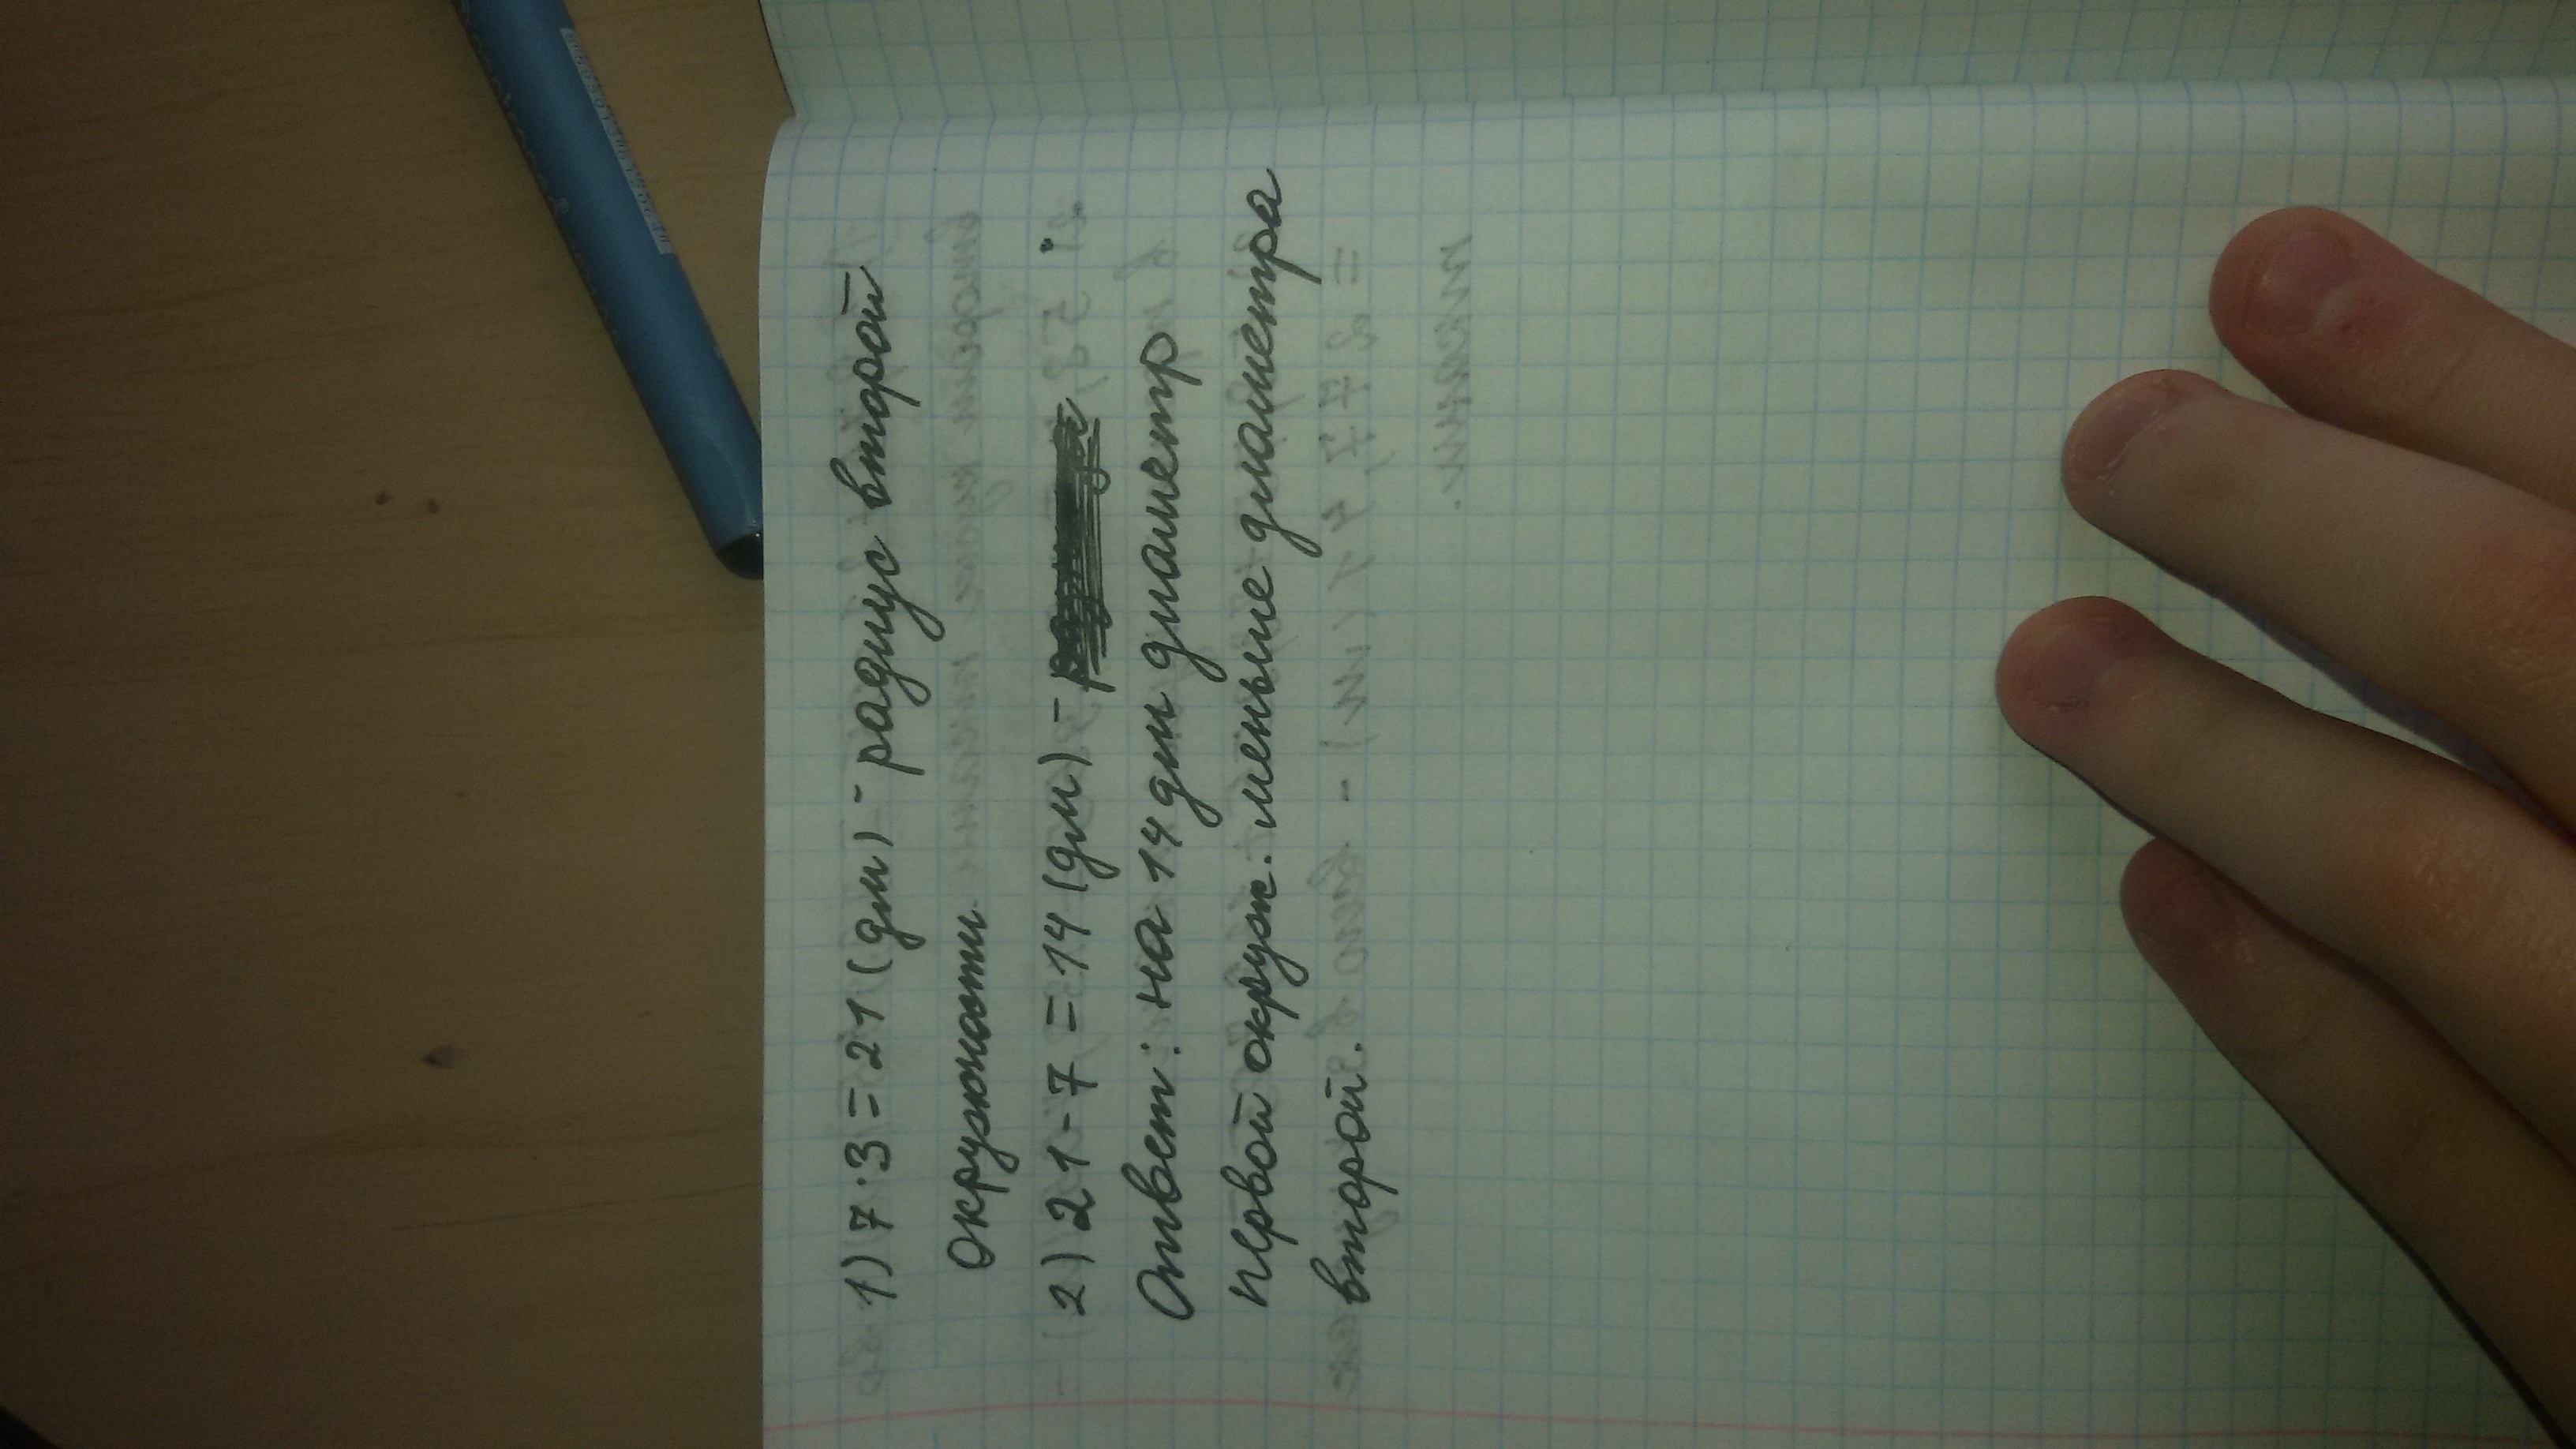 1) 7 · 3 = 21 (дм) - радиус второй
окружности
2) 21 - 7 = 14 (дм) -
Ответ: на 14 дм диаметр
первой окруж. меньше диаметра
второй.